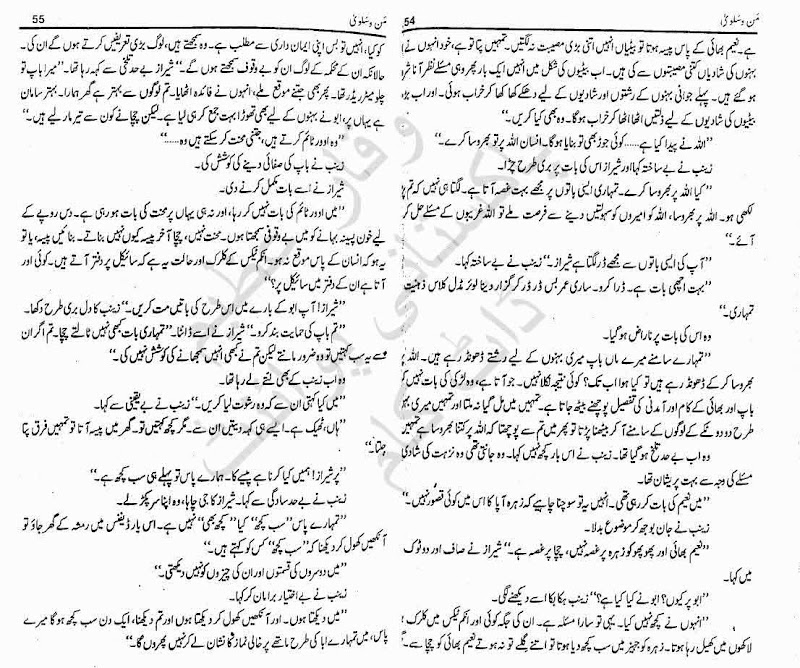 54 مَن وسلویٰ
ہے۔ نعیم بھائی کے پاس پیسہ ہوتا تو بیٹیاں انہیں اتنی بڑی مصیبت نہ لگتیں۔ تمہیں پتا تو ہے، خود انہوں نے
بہنوں کی شادیاں کتنی مصیبتوں سے کی ہیں۔ اب بیٹیوں کی شکل میں انہیں ایک بار پھر وہی مسئلے نظر آنا شروع
ہو گئے ہیں۔ پہلے جوانی بہنوں کے رشتوں اور شادیوں کے لیے دھکے کھا کھا کر خراب ہوئی۔ اور اب بڑھاپا
بیٹیوں کی شادیوں کے لیے ذلتیں اٹھا اٹھا کر خراب ہوگا۔ وہ بھی کیا کریں۔‘‘
’’اللہ نے پیدا کیا ہے...... کوئی جوڑ بھی تو بنایا ہوگا۔ انسان اللہ پر تو بھروسا کرے۔‘‘
زینب نے بے ساختہ کہا اور شیراز اس کی بات پر بری طرح چڑا۔
’’کیا اللہ پر بھروسا کرے۔ تمہاری ایسی باتوں پر مجھے بہت غصہ آتا ہے۔ لگتا ہی نہیں کہ تم پڑھی
لکھی ہو۔ اللہ پر بھروسا، اللہ کو امیروں کو سہولتیں دینے سے فرصت ملے تو اللہ غریبوں کے مسئلے حل کرنے
آئے۔‘‘
’’آپ کی ایسی باتوں سے مجھے ڈر لگتا ہے شیراز۔‘‘ زینب نے بے ساختہ کہا۔
’’بہت اچھی بات ہے۔ ڈرا کرو۔ ساری عمر بس ڈر ڈر کر گزار دینا لوئر مڈل کلاس ذہنیت
تمہاری۔‘‘
وہ اس کی بات پر ناراض ہو گیا۔
’’تمہارے سامنے میرے ماں باپ میری بہنوں کے لیے رشتے ڈھونڈ رہے ہیں۔ اللہ پر
بھروسا کر کے ڈھونڈ رہے ہیں تو کیا ہوا اب تک؟ کوئی نتیجہ نکلا نہیں۔ جو آتا ہے، وہ لڑکی کی بات نہیں کرتا
باپ اور بھائی کے کام اور آمدنی کی تفصیل پوچھنے بیٹھ جاتا ہے۔ تمہیں میں مل گیا نہ ملتا اور تمہیں میری بہنوں کی
طرح دو دو ٹکے کے لوگوں کے سامنے آ کر بیٹھنا پڑتا تو پھر میں تم سے پوچھتا کہ اللہ پر کتنا بھروسا ہے تمہیں
وہ اب بے حد تلخ ہو گیا تھا۔ زینب نے اس بار کچھ نہیں کہا۔ وہ جانتی تھی وہ نزہت کی شادی
مسئلے کی وجہ سے بہت پریشان تھا۔
’’میں نعیم کی بات کر رہی تھی۔ انہیں یہ تو سوچنا چاہیے کہ زہرہ آپا کا اس میں کوئی قصور نہیں۔‘‘
زینب نے جان بوجھ کر موضوع بدلا۔
’’نعیم بھائی اور پھوپھو کو زہرہ پر نہیں، چچا پر غصہ ہے۔‘‘ شیراز نے صاف اور دو ٹوک
میں کہا۔
’’ابو پر کیوں؟ ابو نے کیا کیا ہے؟‘‘ زینب ہکا بکا اسے دیکھنے لگی۔
’’انہوں نے کچھ نہیں کیا۔ یہی تو سارا مسئلہ ہے۔ ان کی جگہ کوئی اور انکم ٹیکس میں کلرک
لاکھوں میں کھیل رہا ہوتا۔ زہرہ کو جہیز میں سب کچھ دیا ہوتا تو اتنے گلے تو نہ ہوتے نعیم بھائی کو چچا سے۔
55 مَن وسلویٰ
کو کیا، انہیں تو بس اپنی ایمان داری سے مطلب ہے۔ وہ سمجھتے ہیں، لوگ بڑی تعریفیں کرتے ہوں گے ان کی۔
حالانکہ ان کے محکمہ کے لوگ ان کو بے وقوف سمجھتے ہوں گے۔‘‘ شیراز بے حد تلخی سے کہہ رہا تھا۔ ’’میرا باپ تو
چلو میٹر ریڈر تھا۔ پھر بھی جتنے موقع ملے، انہوں نے فائدہ اٹھایا۔ تم لوگوں سے بہتر ہے گھر ہمارا۔ بہتر سامان
ہے یہاں پر، ابو نے بہنوں کے لیے بھی تھوڑا بہت جمع کر ہی لیا ہے۔ لیکن چچا نے کون سے تیر مار لیے ہیں۔‘‘
’’وہ اوور ٹائم کرتے ہیں، جتنی محنت کر سکتے ہیں وہ......‘‘
زینب نے باپ کی صفائی دینے کی کوشش کی۔
شیراز نے اسے بات مکمل کرنے نہ دی۔
’’میں اوور ٹائم کی بات نہیں کر رہا، اور نہ ہی یہاں پر محنت کی بات ہو رہی ہے۔ دس روپے کے
لیے خون پسینہ بہانے کو میں بے وقوفی سمجھتا ہوں۔ محنت نہیں، چچا آخر پیسہ کیوں نہیں بناتے۔ بنائیں پیسہ، یا تو
یہ ہو کہ انسان کے پاس موقع نہ ہو۔ انکم ٹیکس کے کلرک اور حالت یہ ہے کہ سائیکل پر دفتر آتے ہیں۔ کوئی اور
آتا ہے ان کے دفتر میں سائیکل پر؟‘‘
’’شیراز! آپ ابو کے بارے میں اس طرح کی باتیں مت کریں۔‘‘ زینب کا دل بری طرح دکھا۔
’’تم باپ کی حمایت بند کرو۔‘‘ شیراز نے اسے ڈانٹا۔ ’’تمہاری بات کبھی نہیں ٹالتے چچا۔ تم اگر ان
سے یہ سب کہتیں تو وہ ضرور مانتے لیکن تم نے کبھی انہیں سمجھانے کی کوشش نہیں کی۔‘‘
وہ اب زینب کے بھی لتے لے رہا تھا۔
’’میں کیا کہتی ان سے کہ وہ رشوت لیا کریں۔‘‘ زینب نے بے یقینی سے کہا۔
’’ہاں، ٹھیک ہے۔ ایسے ہی کہہ دیتیں ان سے۔ مگر کچھ کہتیں تو۔ گھر میں پیسہ آتا تو تمہیں فرق پتا
چلتا۔‘‘
’’پر شیراز! ہمیں کیا کرنا ہے پیسے کا۔ ہمارے پاس تو پہلے ہی سب کچھ ہے۔‘‘
زینب نے بے حد سادگی سے کہا۔ شیراز کا جی چاہا، وہ اپنا سر پکڑ لے۔
’’تمہارے پاس ’’سب کچھ‘‘ کیا ’’کچھ بھی‘‘ نہیں ہے۔ اس بار ڈیفنس میں رمشہ کے گھر جاؤ تو
آنکھیں کھول کر دیکھنا کہ ’’سب کچھ‘‘ کس کو کہتے ہیں۔‘‘
’’میں دوسروں کی قسمتوں اور ان کی چیزوں کو نہیں دیکھتی۔‘‘
زینب نے بے اختیار برا مان کر کہا۔
’’میں دیکھتا ہوں۔ اور آنکھیں کھول کر دیکھتا ہوں اور تم دیکھنا، ایک دن سب کچھ ہوگا میرے
پاس، میں تمہارے ابا کی طرح ماتھے پر خالی نماز کا نشان لے کر نہیں پھروں گا۔‘‘